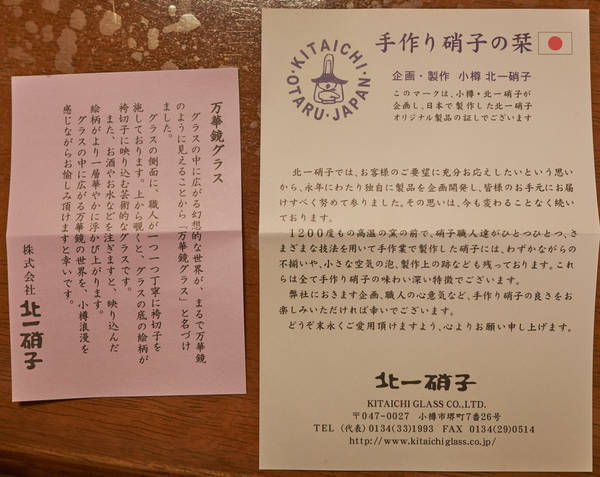 万華鏡グラス
グラスの中に広がる幻想的な世界が、まるで万華鏡
のように見えることから「万華鏡グラス」と名づけ
ました。
グラスの側面に、職人が一つ一つ丁寧に袴切子を
施しております。上から覗くと、グラスの底の絵柄が
袴切子に映り込む芸術的なグラスです。
また、お酒やお水などを注ぎますと、映り込んだ
絵柄がより一層華やかに浮かび上がります。
グラスの中に広がる万華鏡の世界を、小樽浪漫を
感じながらお愉しみ頂けますと幸いです。
株式会社 北一硝子
・KITAICHI・
OTARU・JAPAN
手作り硝子の栞
企画・製作 小樽 北一硝子
このマークは、小樽・北一硝子が
企画し、日本で製作した北一硝子
オリジナル製品の証しでございます
北一硝子では、お客様のご要望に充分お応えしたいという思い
から、永年にわたり独自に製品を企画開発し、皆様のお手元にお届
けすべく努めて参りました。その思いは、今も変わることなく続い
ております。
1200度もの高温の窯の前で、硝子職人達がひとつひとつ、さ
まざまな技法を用いて手作業で製作した硝子には、わずかながらの
不揃いや、小さな空気の泡、製作上の跡なども残っております。これ
らは全て手作り硝子の味わい深い特徴でございます。
弊社におきます企画、職人の心意気など、手作り硝子の良さをお
楽しみいただければ幸いでございます。
どうぞ末永くご愛用頂けますよう、心よりお願い申し上げます。
北一硝子
KITAICHI GLASS CO.,LTD.
〒047-0027 小樽市堺町7番26号
TEL (代表) 0134(33)1993 FAX 0134(29)0514
http://www.kitaichiglass.co.jp/